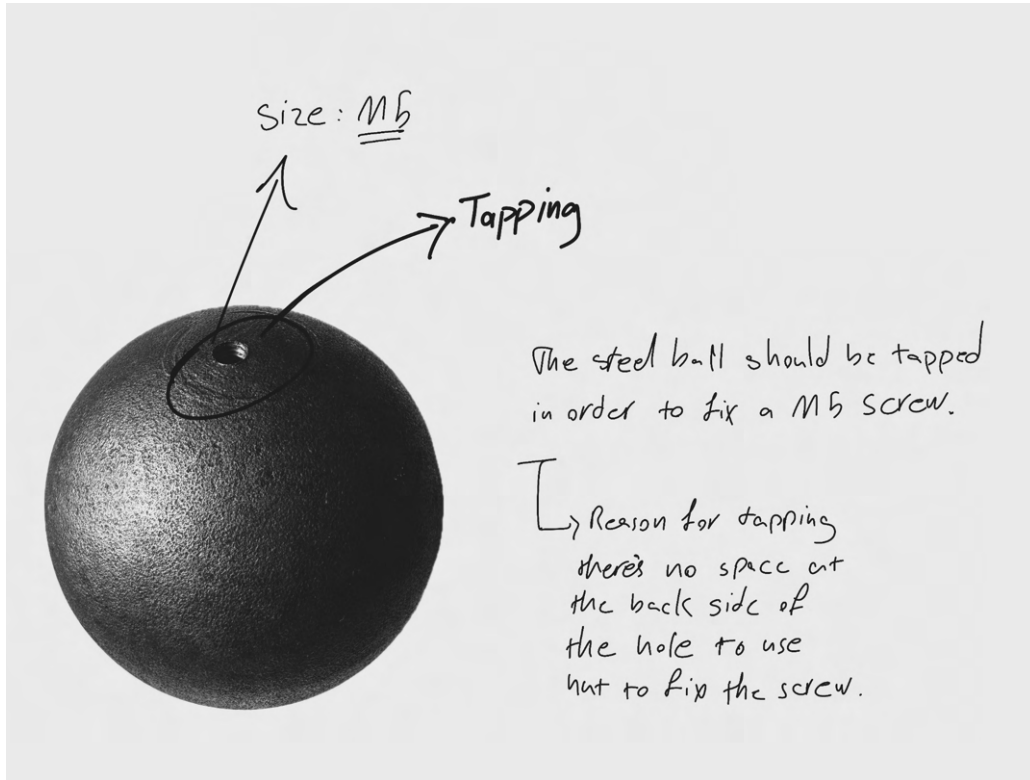 Size: M5
Tapping
The steel ball should be tapped
in order to fix a M5 screw.
Reason for tapping
there's no space at
the back side of
the hole to use
nut to fix the screw.